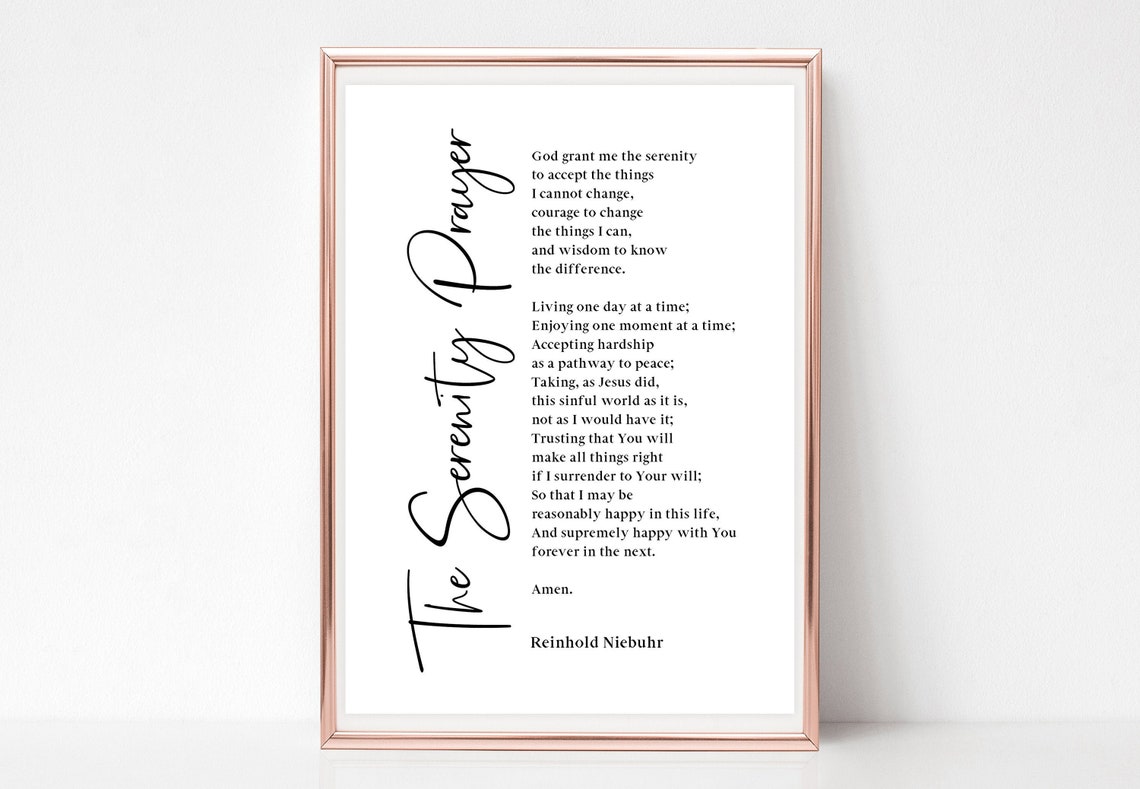 The Serenity Prayer
God grant me the serenity
to accept the things
I cannot change,
courage to change
the things I can,
and wisdom to know
the difference.
Living one day at a time;
Enjoying one moment at a time;
Accepting hardship
as a pathway to peace;
Taking, as Jesus did,
this sinful world as it is,
not as I would have it;
Trusting that You will
make all things right
if I surrender to Your will;
So that I may be
reasonably happy in this life,
And supremely happy with You
forever in the next.
Amen.
Reinhold Niebuhr